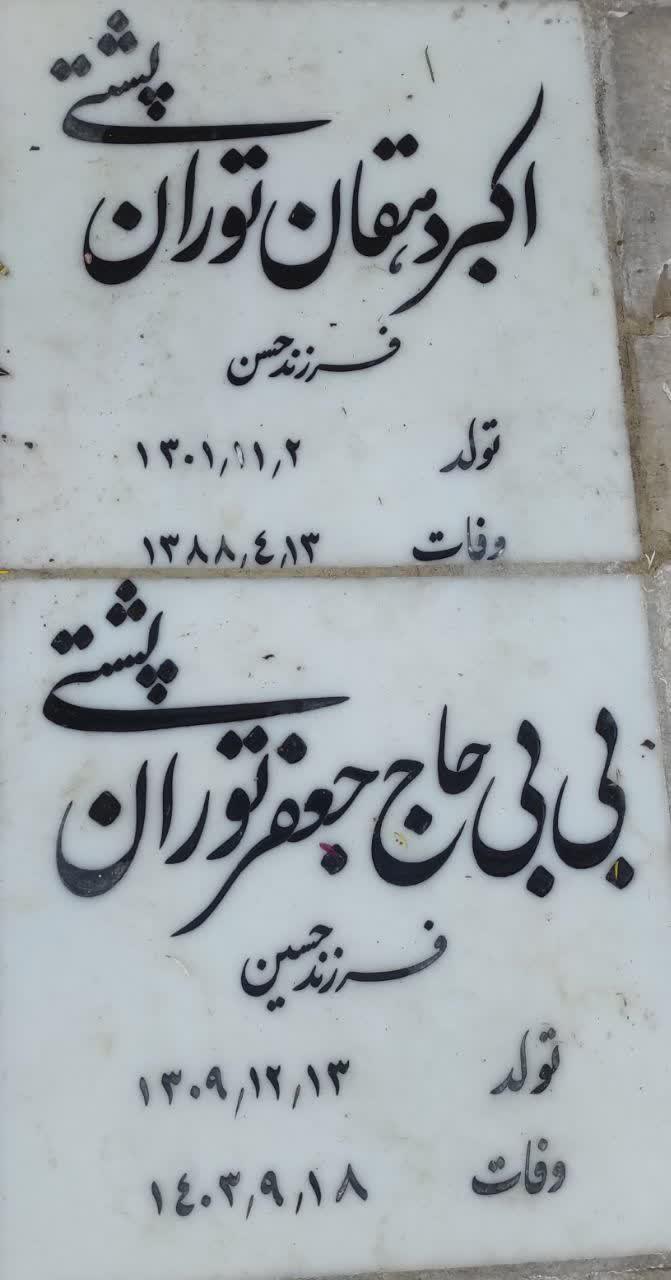 اکبر دهقان توران پشتی
فرزند حسن
تولد ۱۳۰۱٫۱۱٫۲
وفات ۱۳۸۸٫٤٫۱۳
بی بی حاج جعفر توران پشتی
فرزند حسین
تولد ۱۳۰۹٫۱۲٫۱۳
وفات ۱٤۰۳٫۹٫۱۸